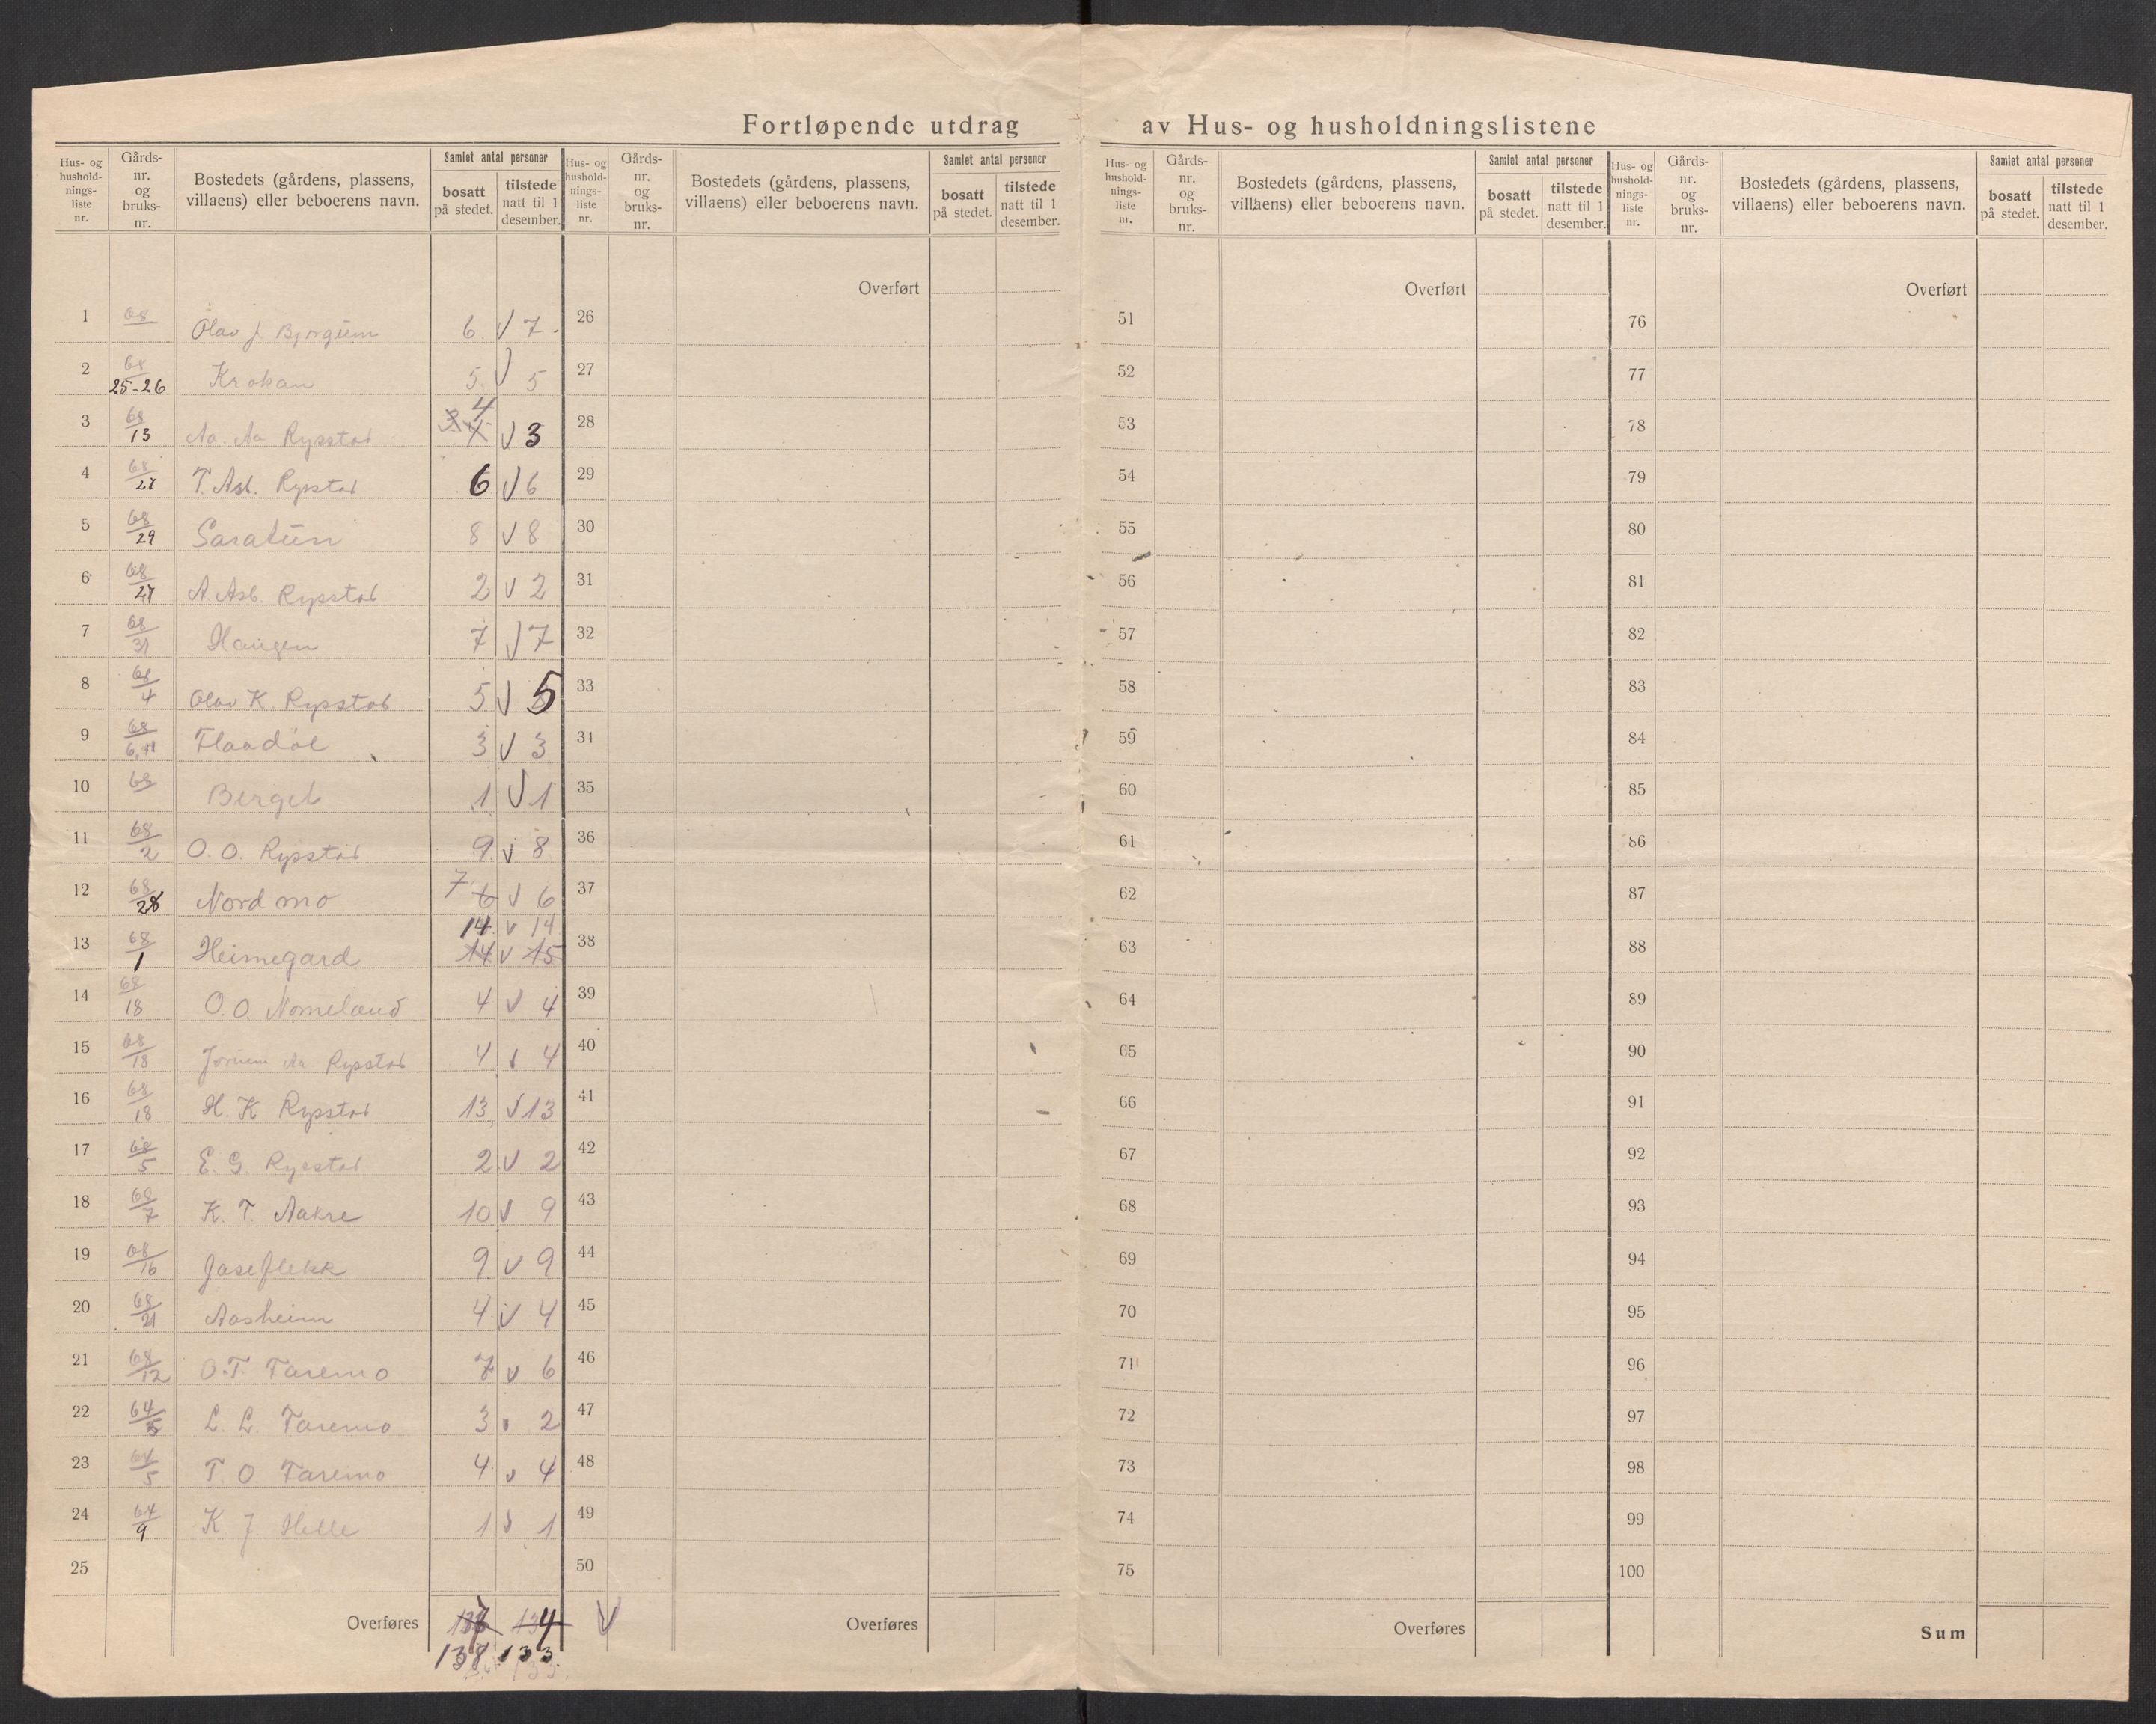 Fortløpende utdrag av Hus- og husholdningslistene
Hus- og hushold-nings-liste nr. | Gårds-nr. og bruks-nr. | Bostedets (gårdens, plassens, villaens) eller beboerens navn. | Samlet antal personer | bosatt på stedet. | tilstede natt til 1 desember.
Hus- og hushold-nings-liste nr. | Gårds-nr. og bruks-nr. | Bostedets (gårdens, plassens, villaens) eller beboerens navn. | Samlet antal personer | bosatt på stedet. | tilstede natt til 1 desember.
Hus- og hushold-nings-liste nr. | Gårds-nr. og bruks-nr. | Bostedets (gårdens, plassens, villaens) eller beboerens navn. | Samlet antal personer | bosatt på stedet. | tilstede natt til 1 desember.
Hus- og hushold-nings-liste nr. | Gårds-nr. og bruks-nr. | Bostedets (gårdens, plassens, villaens) eller beboerens navn. | Samlet antal personer | bosatt på stedet. | tilstede natt til 1 desember.
1 68 Olav J. Bjorgum 6 V 7
2 68/25-26 Krokan 5 V 5
3 68/13 Aa. Aa Rysstad 4 V 3
4 68/27 T. Asb. Rysstad 6 V 6
5 68/29 Saratun 8 V 8
6 68/27 A. Asb. Rysstad 2 V 2
7 68/31 Haugen 7 V 7
8 68/4 Olav K. Rysstad 5 V 5
9 68/6,11 Flaadøl 3 V 3
10 68 Berget 1 V 1
11 68/2 O. O. Rysstad 9 V 8
12 68/28 Nordmo 7 6 V 6
14 V 14
13 68/1 Heimegard 14 V 15
14 68/18 O. O. Nomeland 4 V 4
15 68/18 Aa Rysstad 4 V 4
16 68/18 H. K Rysstad 13 V 13
17 68/5 E. G. Rysstad 2 V 2
18 68/7 K. T. Aakre 10 V 9
19 68/16 Jaseflekk 9 V 9
20 68/21 Aasheim 4 V 4
21 68/12 O. T. Taremo 7 V 6
22 64/5 L. L. Taremo 3 V 2
23 64/5 T. O. Taremo 4 V 4
24 64/9 K J Helle 1 V 1
25
Overføres 137 134 V
138 133
Overført
26
27
28
29
30
31
32
33
34
35
36
37
38
39
40
41
42
43
44
45
46
47
48
49
50
Overføres
Overført
51
52
53
54
55
56
57
58
59
60
61
62
63
64
65
66
67
68
69
70
71
72
73
74
75
Overføres
Overført
76
77
78
79
80
81
82
83
84
85
86
87
88
89
90
91
92
93
94
95
96
97
98
99
100
Sum